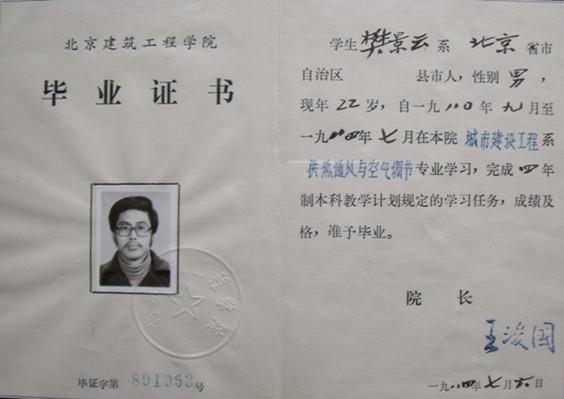 北京建筑工程学院
毕业证书
毕证字第 801053 号
学生 樊景云 系 北京 省市
自治区 县市人，性别 男，
现年 22 岁，自一九八〇年 九月至
一九八四年 七月在本院 城市建设工程系
供热通风与空气调节专业学习，完成 四 年
制本科教学计划规定的学习任务，成绩及
格，准予毕业。
院 长
王浚国
一九八四年 七月 六日